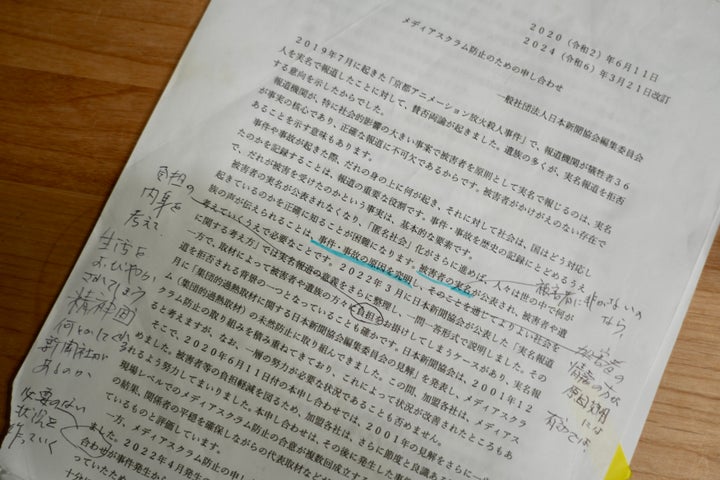 2020（令和2）年6月11日
2024（令和6）年3月21日改訂
メディアスクラム防止のための申し合わせ
一般社団法人日本新聞協会編集委員会
2019年7月に起きた「京都アニメーション放火殺人事件」で、報道機関が犠牲者36
人を実名で報道したことに対して、賛否両論が起きました。遺族の多くが、実名報道を拒否
する意向を示したからでした。
報道機関が、特に社会的影響の大きい事案で被害者を原則として実名で報じるのは、実名
が事実の核心であり、正確な報道に不可欠であるからです。被害者がかけがえのない存在で
あることを示す意味もあります。
事件や事故が起きた際、だれの身の上に何が起き、それに対して社会は、国はどう対応し
たのかを記録することは、報道の重要な役割です。事件・事故を歴史の記録にとどめるうえ
で、だれが被害を受けたのかという事実は、基本的な要素です。
被害者の実名が公表されなくなり、「匿名社会」化がさらに進めば、人々は世の中で何が
起きているのかを正確に知ることが困難になります。被害者の実名が公表され、被害者や遺
族の声が伝えられることは、事件・事故の原因を究明し、そのことを通じてよりよい社会を
考えていくうえで必要なことです。2022年3月に日本新聞協会が公表した「実名報道
に関する考え方」では実名報道の意義をさらに整理し、一問一答形式で説明しました。
一方で、取材によって被害者や遺族の方々に負担をお掛けしてしまうケースがあり、実名報
道を拒否される背景の一つとなっていることも確かです。日本新聞協会は、2001年12
月に「集団的過熱取材に関する日本新聞協会編集委員会の見解」を発表し、メディアスクラ
ム（集団的過熱取材）の未然防止に取り組んできました。この間、加盟各社は、メディアス
クラム防止の取り組みを積み重ねてきており、これによって状況が改善されたところもあ
ると考えますが、なお、一層の努力が必要な状況であることも否めません。
そこで、2020年6月11日付の本申し合わせでは、2001年の見解をさらに一歩
めました。被害者等の負担軽減を図るため、加盟各社は、さらに節度と良識ある
されるよう努力してまいりました。本申し合わせは、その後に発生した事件
現場レベルでのメディアスクラム防止の合意が複数回成立する
の結果、関係者の平穏を確保しながらの代表取材など
ているものと評価しています。
一方、メディアスクラム防止の申し
ました。2022年4月発生の
合わせが事件発生から
っていたため
十分に
負担の
内身を
考えて
生活を
おびやかし
されてしまう
精神面
何とかしてか
新聞社が
あるのか
必要のない
状況を
作っていく
被害者に非のないの
なら
加害者の
情報の方が
原因究明
には
有効では